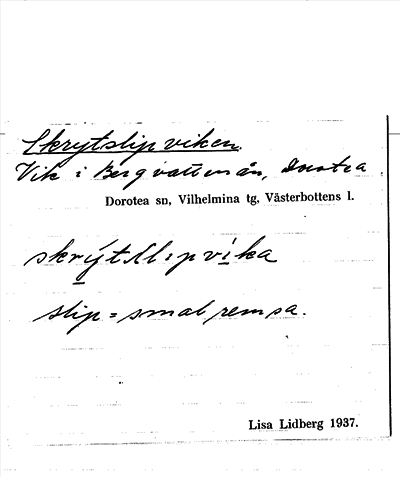 Skrytslipviken.
Vik i Bergvattenån, Dorotea.
Dorotea sn, Vilhelmina tg, Västerbottens l.
slip = smal remsa.
Lisa Lidberg 1937.